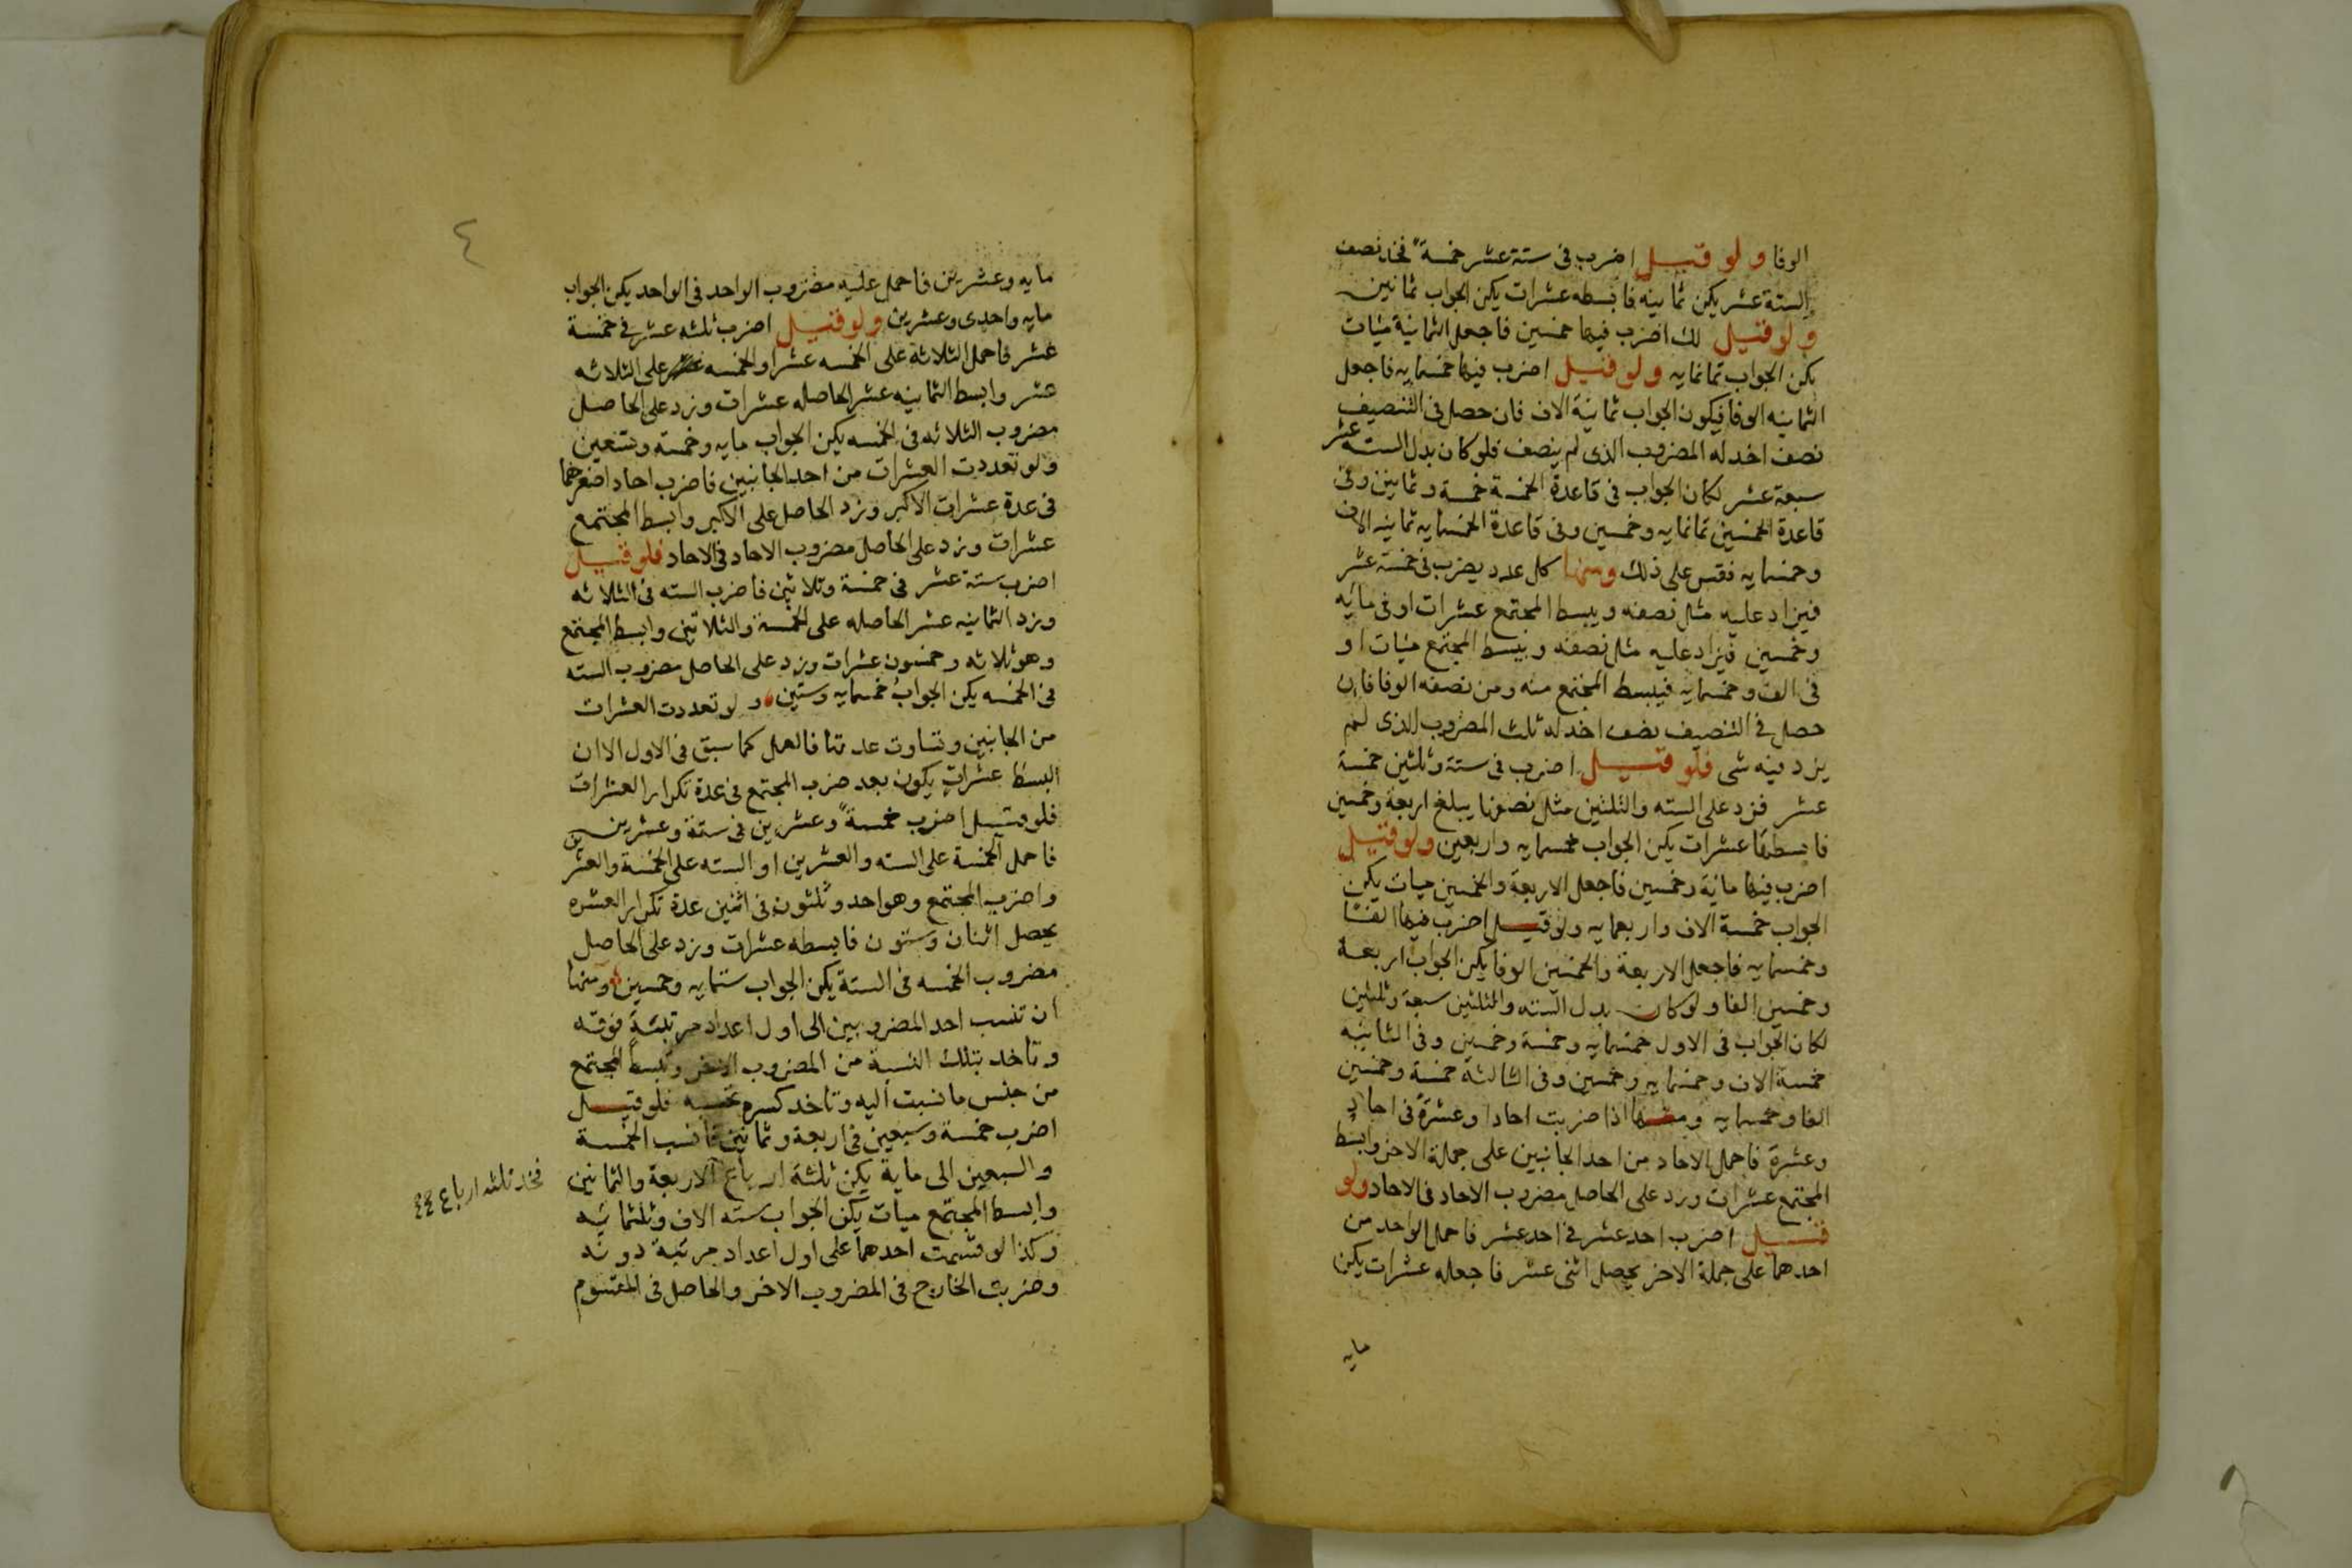 الوفا ولو قيل اضرب فى ستة عشر خمسة فخذ نصف
الستة عشر يكن ثمانيه فابسطه عشرات يكن الجواب ثمانين
ولو قيل لك اضرب فيها خمسين فاجعل الثمانية مئات
يكن الجواب ثمانمايه ولو قيل اضرب فيها خمسمايه فاجعل
الثمانيه الوفا فيكون الجواب ثمانية الاف فان حصل فى التنصيف
نصف اخد له المضروب الذى لم ينصف فلو كان بدل الستة عشر
سبعة عشر لكان الجواب فى قاعدة الخمسة خمسة وثمانين وفى
قاعدة الخمسين ثمانمايه وخمسين وفى قاعدة الخمسمايه ثمانيه الاف
وخمسمايه فقس على ذلك ومنها كل عدد يضرب فى خمسة عشر
فيزاد عليه مثل نصفه ويبسط المجتمع عشرات او فى مايه
وخمسين فيزاد عليه مثل نصفه ويبسط المجتمع مئات او
فى الف وخمسمايه فيبسط المجتمع منه ومن نصفه الوفا فان
حصل فى التنصيف نصف اخد له ثلث المضروب الذى لم
يزد فيه شى فلو قيل اضرب فى ستة وثلثين خمسة
عشر فزد على السته والثلثين مثل نصفها يبلغ اربعة وخمسين
فابسطها عشرات يكن الجواب خمسمايه واربعين ولو قيل
اضرب فيها ماية وخمسين فاجعل الاربعة والخمسين ميات يكن
الجواب خمسة الاف واربعمايه ولو قيل اضرب فيها الفا
وخمسمايه فاجعل الاربعة والخمسين الوفا يكن الجواب اربعة
وخمسين الفا ولو كان بدل السته والثلثين سبعة وثلثين
لكان الجواب فى الاول خمسمايه وخمسة وخمسين وفى الثانيه
خمسة الاف وخمسمايه وخمسين وفى الثالثة خمسة وخمسين
الفا وخمسمايه ومنها اذا ضربت احادا وعشرة فى احاد
وعشرة فاحمل الاحاد من احد الجانبين على جملة الاخر وابسط
المجتمع عشرات وزد على الحاصل مضروب الاحاد فى الاحاد ولو
قيل اضرب احد عشر فى احد عشر فاحمل الواحد من
احدهما على جملة الاخر يحصل اثنى عشر فاجعله عشرات يكن
مايه
٤
مايه وعشرين فاحمل عليه مضروب الواحد فى الواحد يكن الجواب
مايه واحدى وعشرين ولو قيل اضرب ثلثه عشر فى خمسة
عشر فاحمل الثلاثة على الخمسه عشر او الخمسه على الثلاثه
عشر وابسط الثمانيه عشر الحاصله عشرات وزد على الحاصل
مضروب الثلاثه فى الخمسه يكن الجواب مايه وخمسه وتسعين
ولو تعددت العشرات من احد الجانبين فاضرب احاد اصغرهما
فى عدة عشرات الاكبر وزد الحاصل على الاكبر وابسط المجتمع
عشرات وزد على الحاصل مضروب الاحاد فى الاحاد فلو قيل
اضرب ستة عشر فى خمسة وثلاثين فاضرب السته فى الثلاثه
وزد الثمانيه عشر الحاصله على الخمسة والثلاثين وابسط المجتمع
وهو ثلاثه وخمسون عشرات وزد على الحاصل مضروب السته
فى الخمسه يكن الجواب خمسمايه وستين ولو تعددت العشرات
من الجانبين وتساوت عدتها فالعمل كما سبق فى الاول الا ان
البسط عشرات يكون بعد ضرب المجتمع فى عدة تكرار العشرات
فلو قيل اضرب خمسة وعشرين فى ستة وعشرين
فاحمل الخمسة على السته والعشرين او السته على الخمسة والعشرين
واضرب المجتمع وهو احد وثلثون فى اثنين عدة تكرار العشره
يحصل اثنان وستون فابسطه عشرات وزد على الحاصل
مضروب الخمسه فى الستة يكن الجواب ستمايه وخمسين ومنها
ان تنسب احد المضروبين الى اول اعداد مرتبة فوقه
وتاخد بتلك النسبة من المضروب الاخر وتبسط المجتمع
من جنس ما نسبت اليه وتاخد كسره فلو قيل
اضرب خمسة وسبعين فى اربعة وثمانين فانسب الخمسة
والسبعين الى ماية يكن ثلثة ارباع الاربعة والثمانين
وابسط المجتمع ميات يكن الجواب سته الاف وثلثمايه
وكذا لو قسمت احدهما على اول اعداد مرتبة دونه
وضربت الخارج فى المضروب الاخر والحاصل فى المقسوم
فخذ ثلثه ارباع